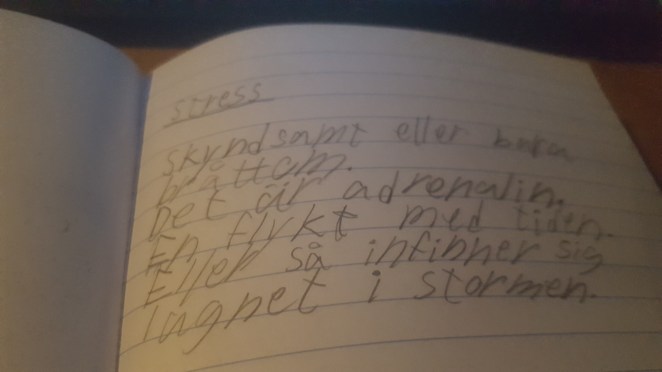 stress
skyndsamt eller bara
bråttom.
Det är adrenalin.
En flykt med tiden.
Eller så infinner sig
lugnet i stormen.